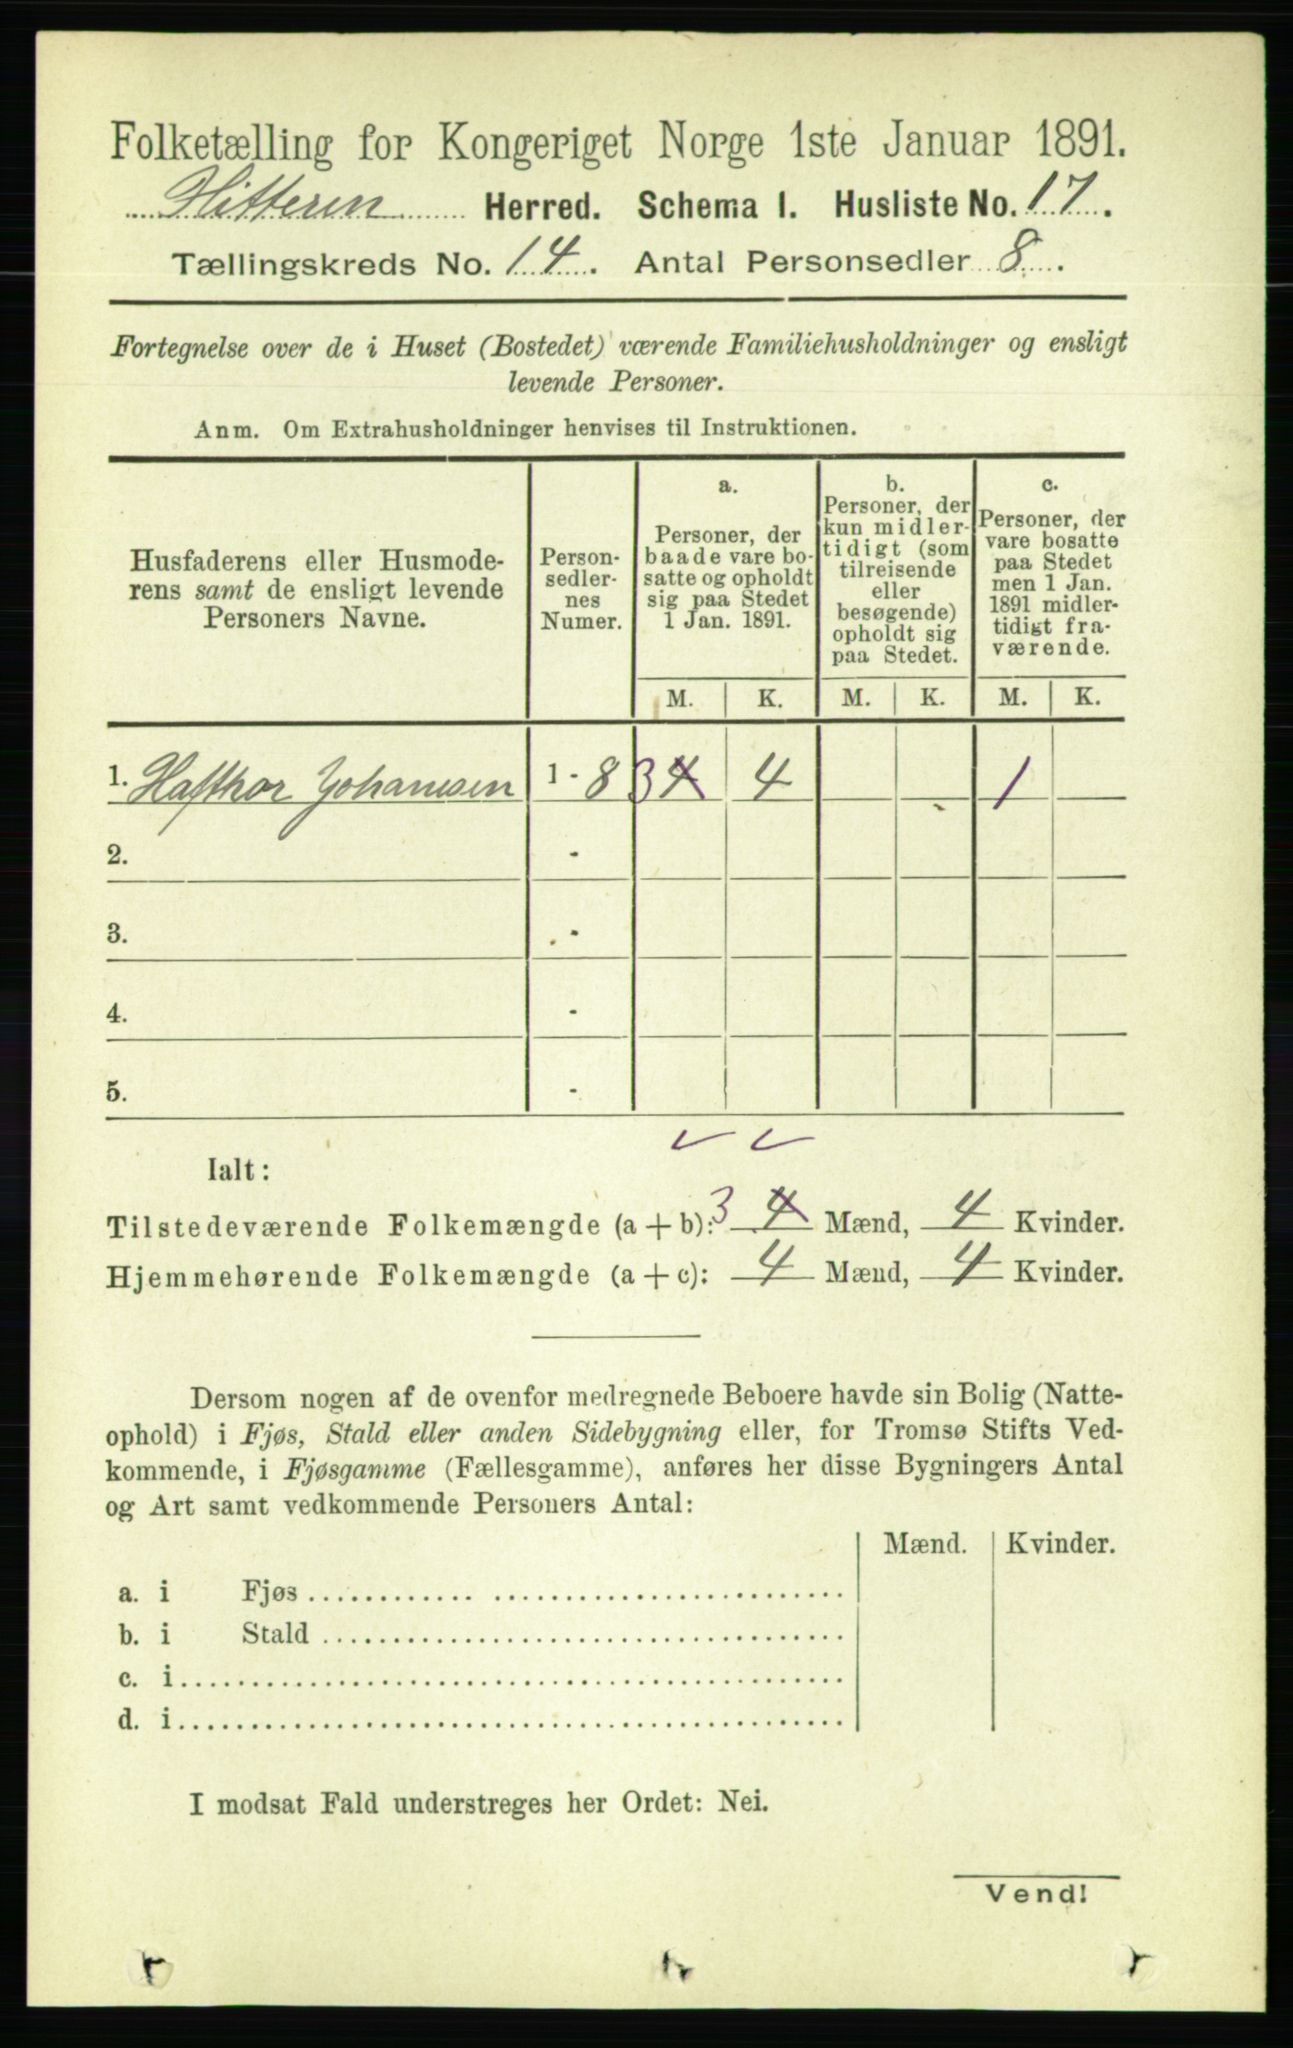 Folketælling for Kongeriget Norge 1ste Januar 1891.
Hitteren Herred. Schema 1. Husliste No. 17.
Tællingskreds No. 14. Antal Personsedler 8.
Fortegnelse over de i Huset (Bostedet) værende Familiehusholdninger og ensligt
levende Personer.
Anm. Om Extrahusholdninger henvises til Instruktionen.
Husfaderens eller Husmode-
rens samt de ensligt levende
Personers Navne.
Person-
sedler-
nes
Numer.
a.
Personer, der
baade vare bo-
satte og opholdt
sig paa Stedet
1 Jan. 1891.
b.
Personer, der
kun midler-
tidigt (som
tilreisende
eller
besøgende)
opholdt sig
paa Stedet.
c.
Personer, der
vare bosatte
paa Stedet
men 1 Jan.
1891 midler-
tidigt fra-
værende.
M. K. M. K. M. K.
1. Hafthor Johansen 1 - 8 3 4 4 1
2. -
3. -
4. -
5. -
Ialt:
Tilstedeværende Folkemængde (a + b): 3 4 Mænd, 4 Kvinder.
Hjemmehørende Folkemængde (a + c): 4 Mænd, 4 Kvinder.
Dersom nogen af de ovenfor medregnede Beboere havde sin Bolig (Natte-
ophold) i Fjøs, Stald eller anden Sidebygning eller, for Tromsø Stifts Ved-
kommende, i Fjøsgamme (Fællesgamme), anføres her disse Bygningers Antal
og Art samt vedkommende Personers Antal:
Mænd. Kvinder.
a. i Fjøs
b. i Stald
c. i
d. i
I modsat Fald understreges her Ordet: Nei.
Vend!